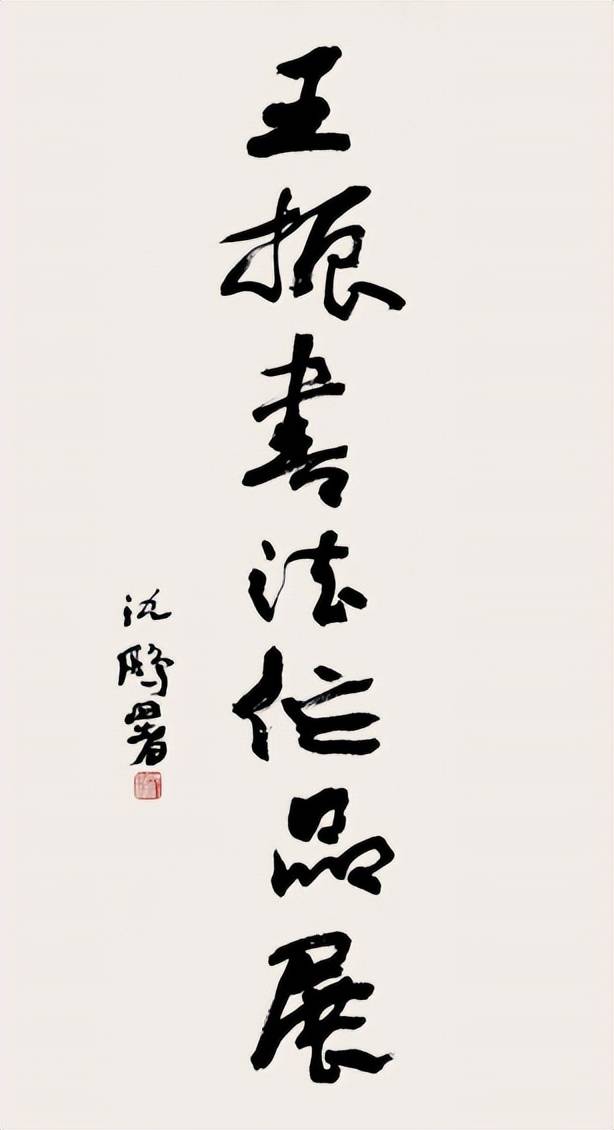 王振书法作品展
沈鹏署